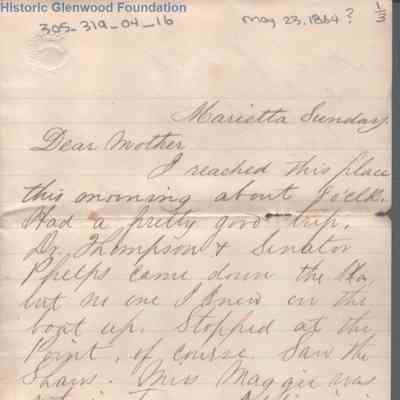 Historic Glenwood Foundation
305-319-04-16
May 23, 1864?
1/3
Marietta Sunday
Dear Mother
I reached this place
this morning about o'clk.
Had a pretty good trip.
Dr. Thompson & Senator
Phelps came down the Ka
but no one I knew on the
boat up. Stopped at the
Point, of course. Saw the
Shaws. Miss Maggie was